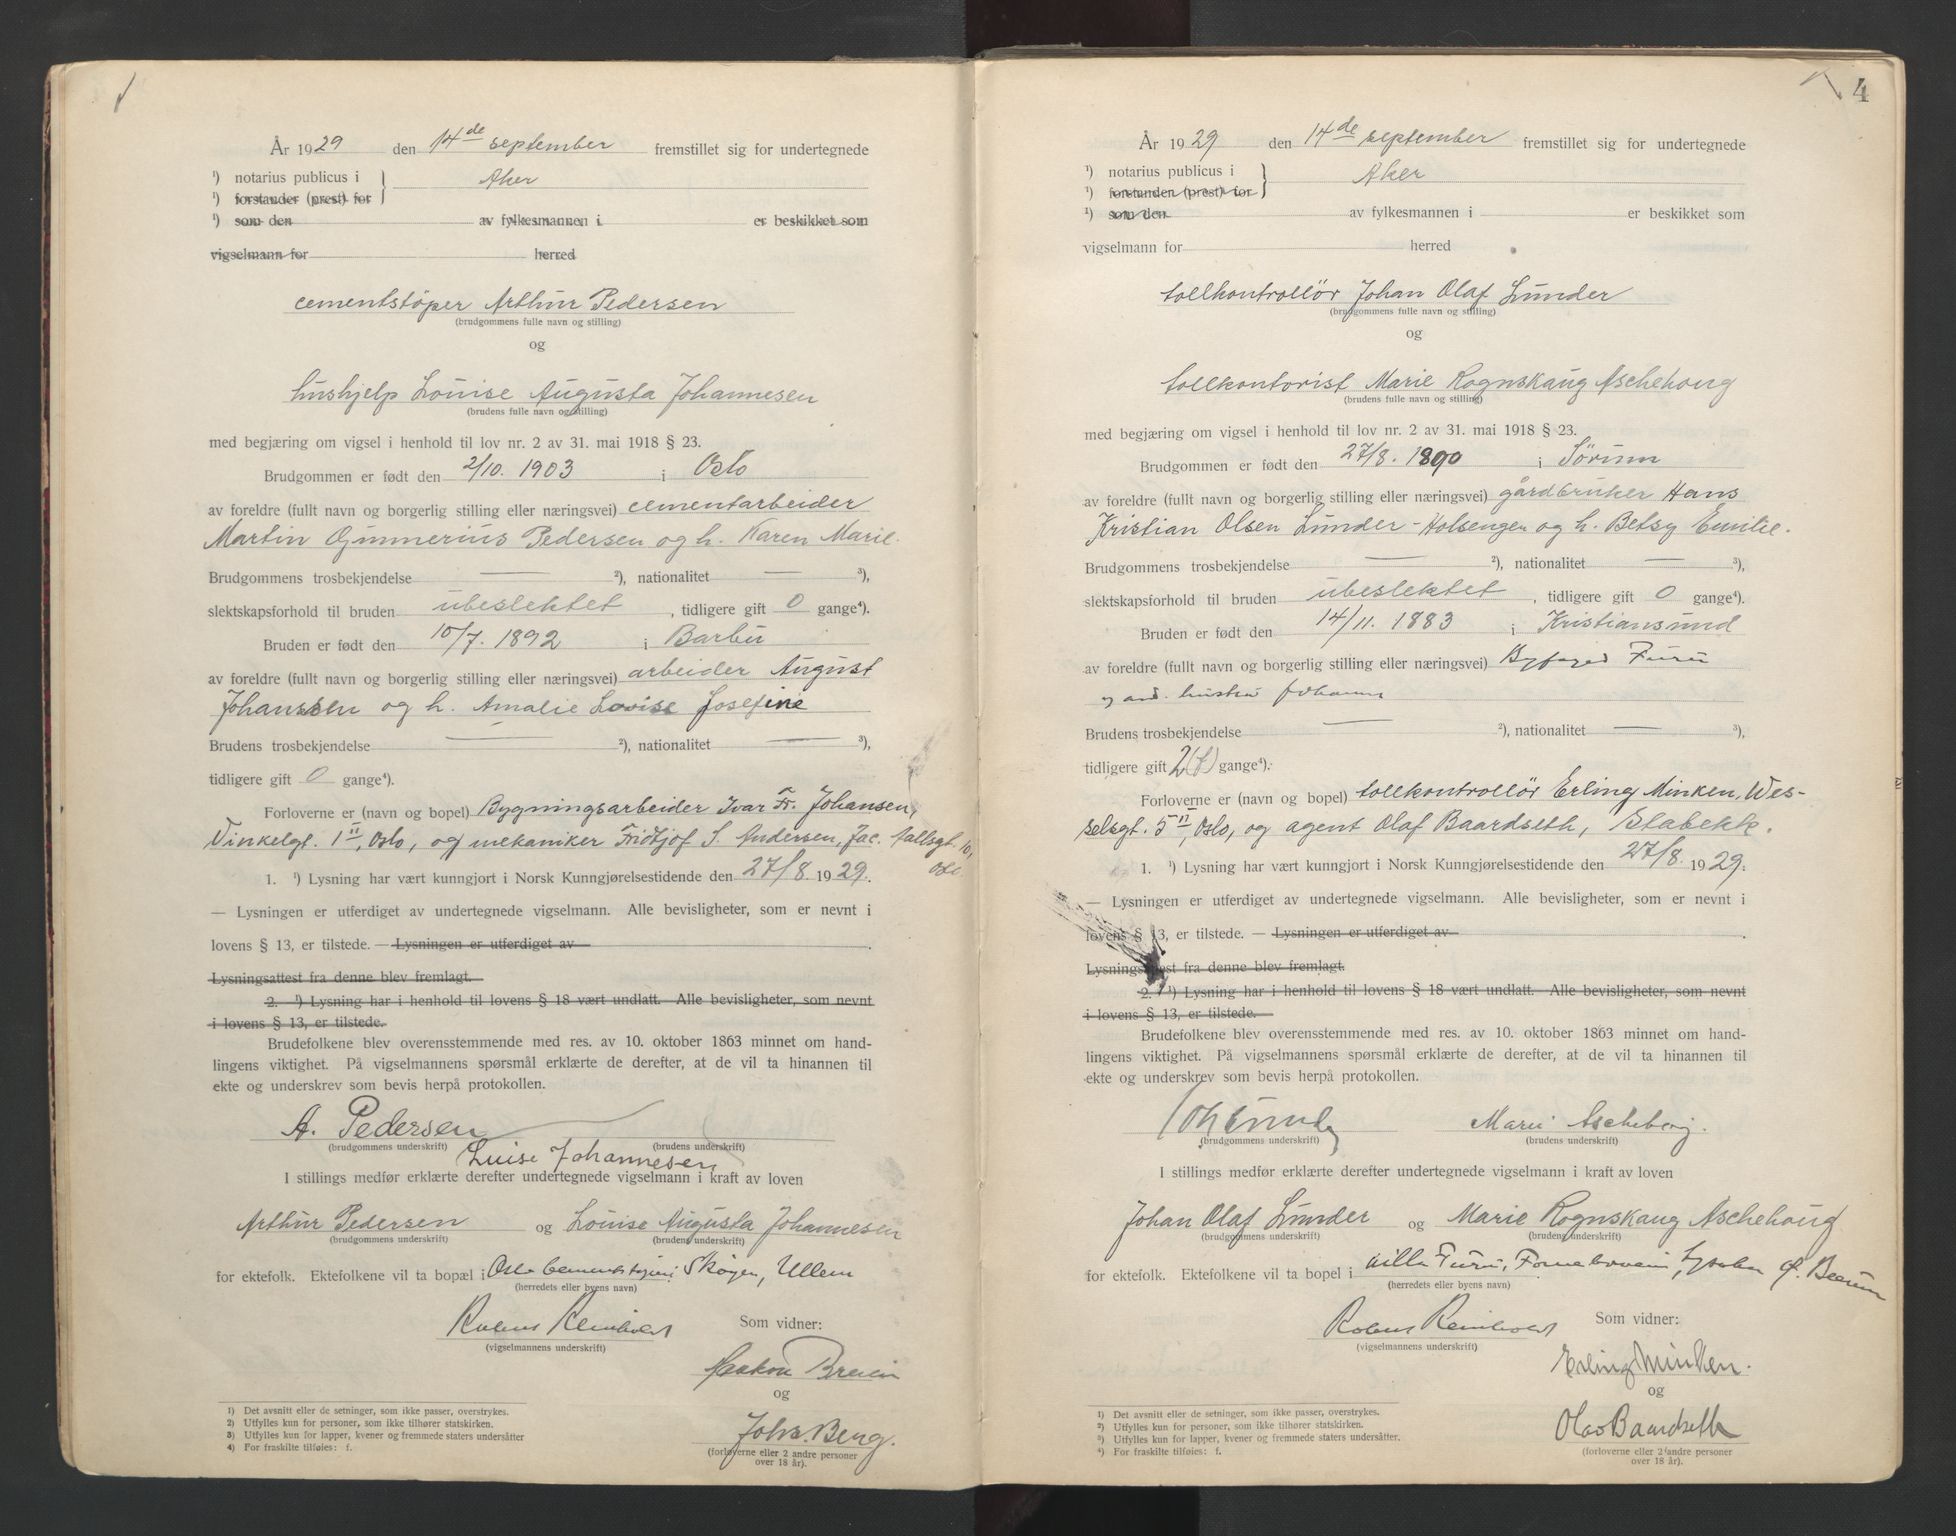 År 1929 den 14de september fremstillet sig for undertegnede
¹) notarius publicus i } Aker
¹) forstander (prest) for
¹) som den av fylkesmannen i er beskikket som
vigselmann for herred
cementstöper Arthur Pedersen
(brudgommens fulle navn og stilling)
og
hushjelp Louise Augusta Johannesen
(brudens fulle navn og stilling)
med begjæring om vigsel i henhold til lov nr. 2 av 31. mai 1918 § 23.
Brudgommen er født den 2/10. 1903 i Oslo
av foreldre (fullt navn og borgerlig stilling eller næringsvei) cementarbeider
Martin Gunnerius Pedersen og h. Karen Marie.
Brudgommens trosbekjendelse — ²), nationalitet — ³),
slektskapsforhold til bruden ubeslektet, tidligere gift 0 gange⁴).
Bruden er født den 10/7. 1892 i Barbu
av foreldre (fullt navn og borgerlig stilling eller næringsvei) arbeider August
Johanssen og h. Amalie Lovise Josefine
Brudens trosbekjendelse — ²), nationalitet — ³),
tidligere gift 0 gange⁴).
Forloverne er (navn og bopel) Bygningsarbeider Ivar Fr. Johansen,
Vinkelgt. 1 II, Oslo, og mekaniker Fridtjof S. Andersen, Jac. Aallsgt. 10,
Oslo.
1. ¹) Lysning har vært kunngjort i Norsk Kunngjørelsestidende den 27/8. 1929.
— Lysningen er utferdiget av undertegnede vigselmann. Alle bevisligheter, som er nevnt i
lovens § 13, er tilstede. — Lysningen er utferdiget av
Lysningsattest fra denne blev fremlagt.
2. ¹) Lysning har i henhold til lovens § 18 vært undlatt. Alle bevisligheter, som nevnt
i lovens § 13, er tilstede.
Brudefolkene blev overensstemmende med res. av 10. oktober 1863 minnet om hand-
lingens viktighet. På vigselmannens spørsmål erklærte de derefter, at de vil ta hinannen til
ekte og underskrev som bevis herpå protokollen.
A. Pedersen
(brudgommens underskrift) (brudens underskrift)
Luise Johannesen
I stillings medfør erklærte derefter undertegnede vigselmann i kraft av loven
Arthur Pedersen og Louise Augusta Johannesen
(brudgommens underskrift) (brudens underskrift)
for ektefolk. Ektefolkene vil ta bopæl i Oslo Skøyen, Ullern
(herredets eller byens navn)
Rubens Reinholdt Som vidner:
(vigselmannens underskrift)
Haakon
og
Johs. Berg.
(forloverne eller 2 andre personer
over 18 år).
1) Det avsnitt eller de setninger, som ikke passer, overstrykes.
2) Utfylles kun for personer, som ikke tilhører statskirken.
3) Utfylles kun for lapper, kvener og fremmede staters undersåtter
4) For fraskilte tilføies: f.
4
År 1929 den 14de september fremstillet sig for undertegnede
¹) notarius publicus i } Aker
¹) forstanden (prest) for
¹) som den av fylkesmannen i er beskikket som
vigselmann for herred
tollkontrollör Johan Olaf Lunder
(brudgommens fulle navn og stilling)
og
tollkontorist Marie Rognskaug Aschehoug
(brudens fulle navn og stilling)
med begjæring om vigsel i henhold til lov nr. 2 av 31. mai 1918 § 23.
Brudgommen er født den 27/8. 1890 i Sörum
av foreldre (fullt navn og borgerlig stilling eller næringsvei) gårdbruker Hans
Kristian Olsen Lunder-Holsengen og h. Betsy Emilie.
Brudgommens trosbekjendelse — ²), nationalitet — ³),
slektskapsforhold til bruden ubeslektet, tidligere gift 0 gange⁴).
Bruden er født den 14/11. 1883 i Kristiansund
av foreldre (fullt navn og borgerlig stilling eller næringsvei) Byfoged Furu
og hustru Johanne
Brudens trosbekjendelse — ²), nationalitet — ³),
tidligere gift 2 (f) gange⁴).
Forloverne er (navn og bopel) tollkontrollör Erling Minken, Wes-
selsgt. 5 II, Oslo, og agent Olaf Baardseth, Stabekk.
1. ¹) Lysning har vært kunngjort i Norsk Kunngjørelsestidende den 27/8. 1929.
— Lysningen er utferdiget av undertegnede vigselmann. Alle bevisligheter, som er nevnt i
lovens § 13, er tilstede. — Lysningen er utferdiget av
Lysningsattest fra denne blev fremlagt.
2. ¹) Lysning har i henhold til lovens § 18 vært undlatt. Alle bevisligheter, som nevnt
i lovens § 13, er tilstede.
Brudefolkene blev overensstemmende med res. av 10. oktober 1863 minnet om hand-
lingens viktighet. På vigselmannens spørsmål erklærte de derefter, at de vil ta hinannen til
ekte og underskrev som bevis herpå protokollen.
Joh Lunder Marie Aschehoug.
(brudgommens underskrift) (brudens underskrift)
I stillings medfør erklærte derefter undertegnede vigselmann i kraft av loven
Johan Olaf Lunder og Marie Rognskaug Aschehoug
(brudgommens underskrift) (brudens underskrift)
for ektefolk. Ektefolkene vil ta bopel i villa Furu, Lysaker
(herredets eller byens navn)
Rubens Reinholdt Som vidner:
(vigselmannens underskrift)
Erling Minken.
og
Olav Baardseth
(forloverne eller 2 andre personer
over 18 år).
¹) Det avsnitt eller de setninger, som ikke passer, overstrykes.
²) Utfylles kun for personer, som ikke tilhører statskirken.
³) Utfylles kun for lapper, kvener og fremmede staters undersåtter.
⁴) For fraskilte tilføies: f.